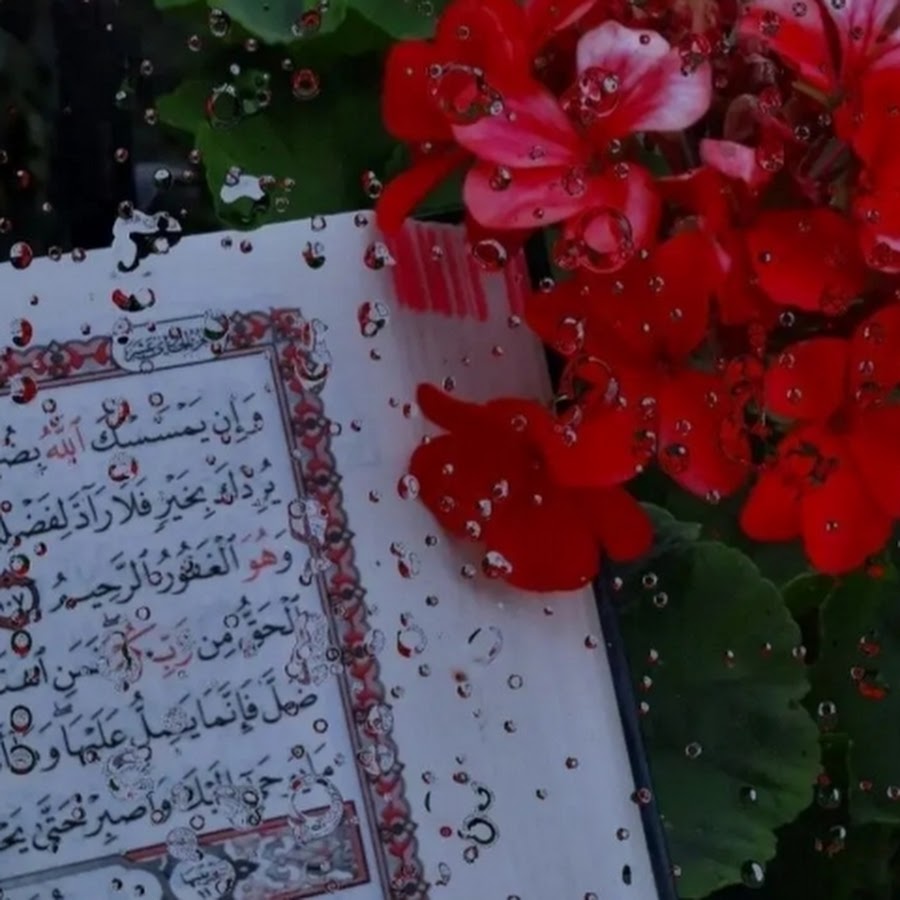 وَإِن يَمْسَسْكَ ٱللَّهُ بِضُ
يُرِدْكَ بِخَيْرٍ فَلَا رَآدَّ لِفَضْلِهِ
وَهُوَ ٱلْغَفُورُ ٱلرَّحِيمُ ١٠٧
ٱلْحَقُّ مِن رَّبِّكُمْ فَمَنِ ٱهْتَ
ضَلَّ فَإِنَّمَا يَضِلُّ عَلَيْهَا وَمَآ أَ
إِلَيْكَ وَٱصْبِرْ حَتَّىٰ يَحْ